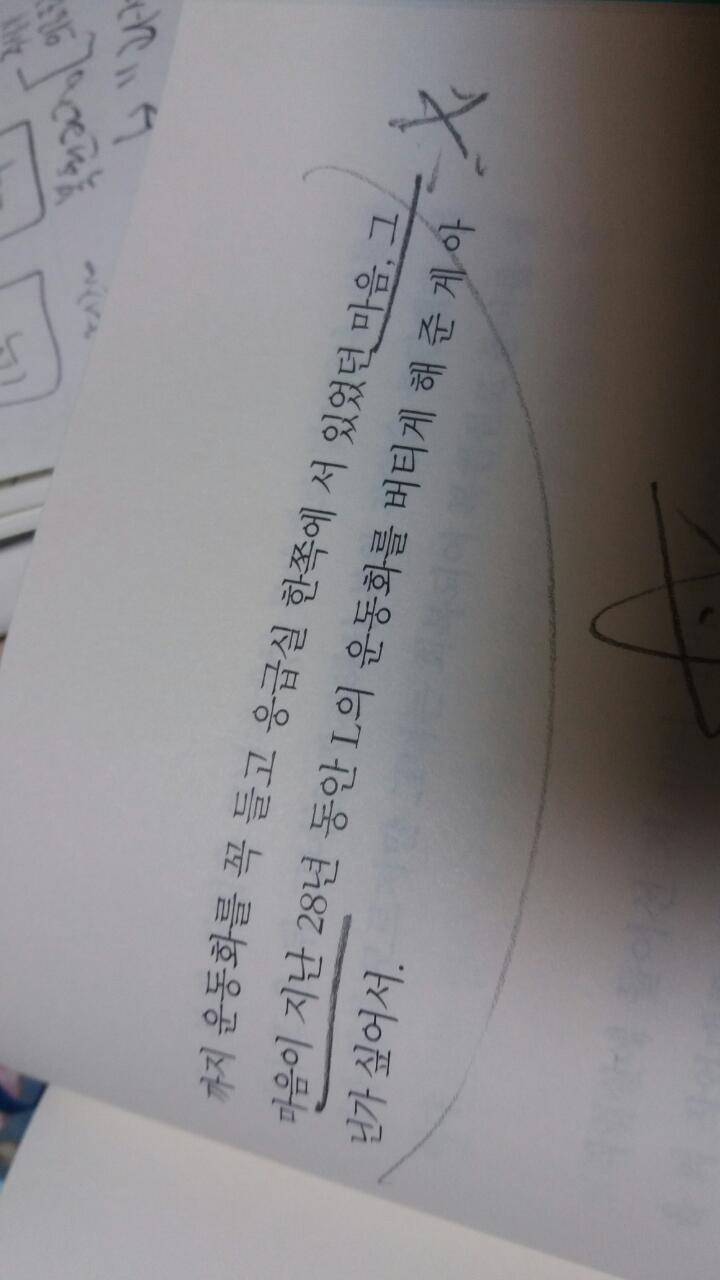 까지 운동화를 꼭 들고 응급실 한쪽에 서 있었던 마음, 그
마음이 지난 28년 동안 L의 운동화를 버티게 해 준 게 아
닌가 싶어서.